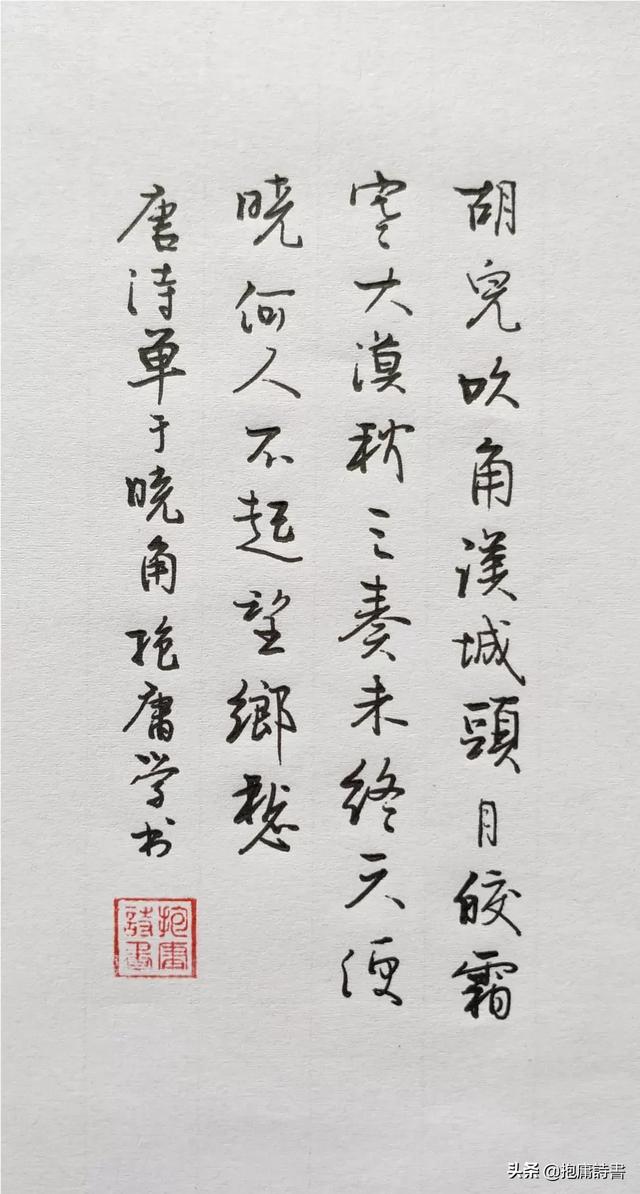 胡兒吹角漢城頭月皎霜
寒大漠秋三奏未終天便
曉何人不起望鄉愁
唐诗单于曉角抱庸学书
抱庸
詩書
头条 @抱庸詩書